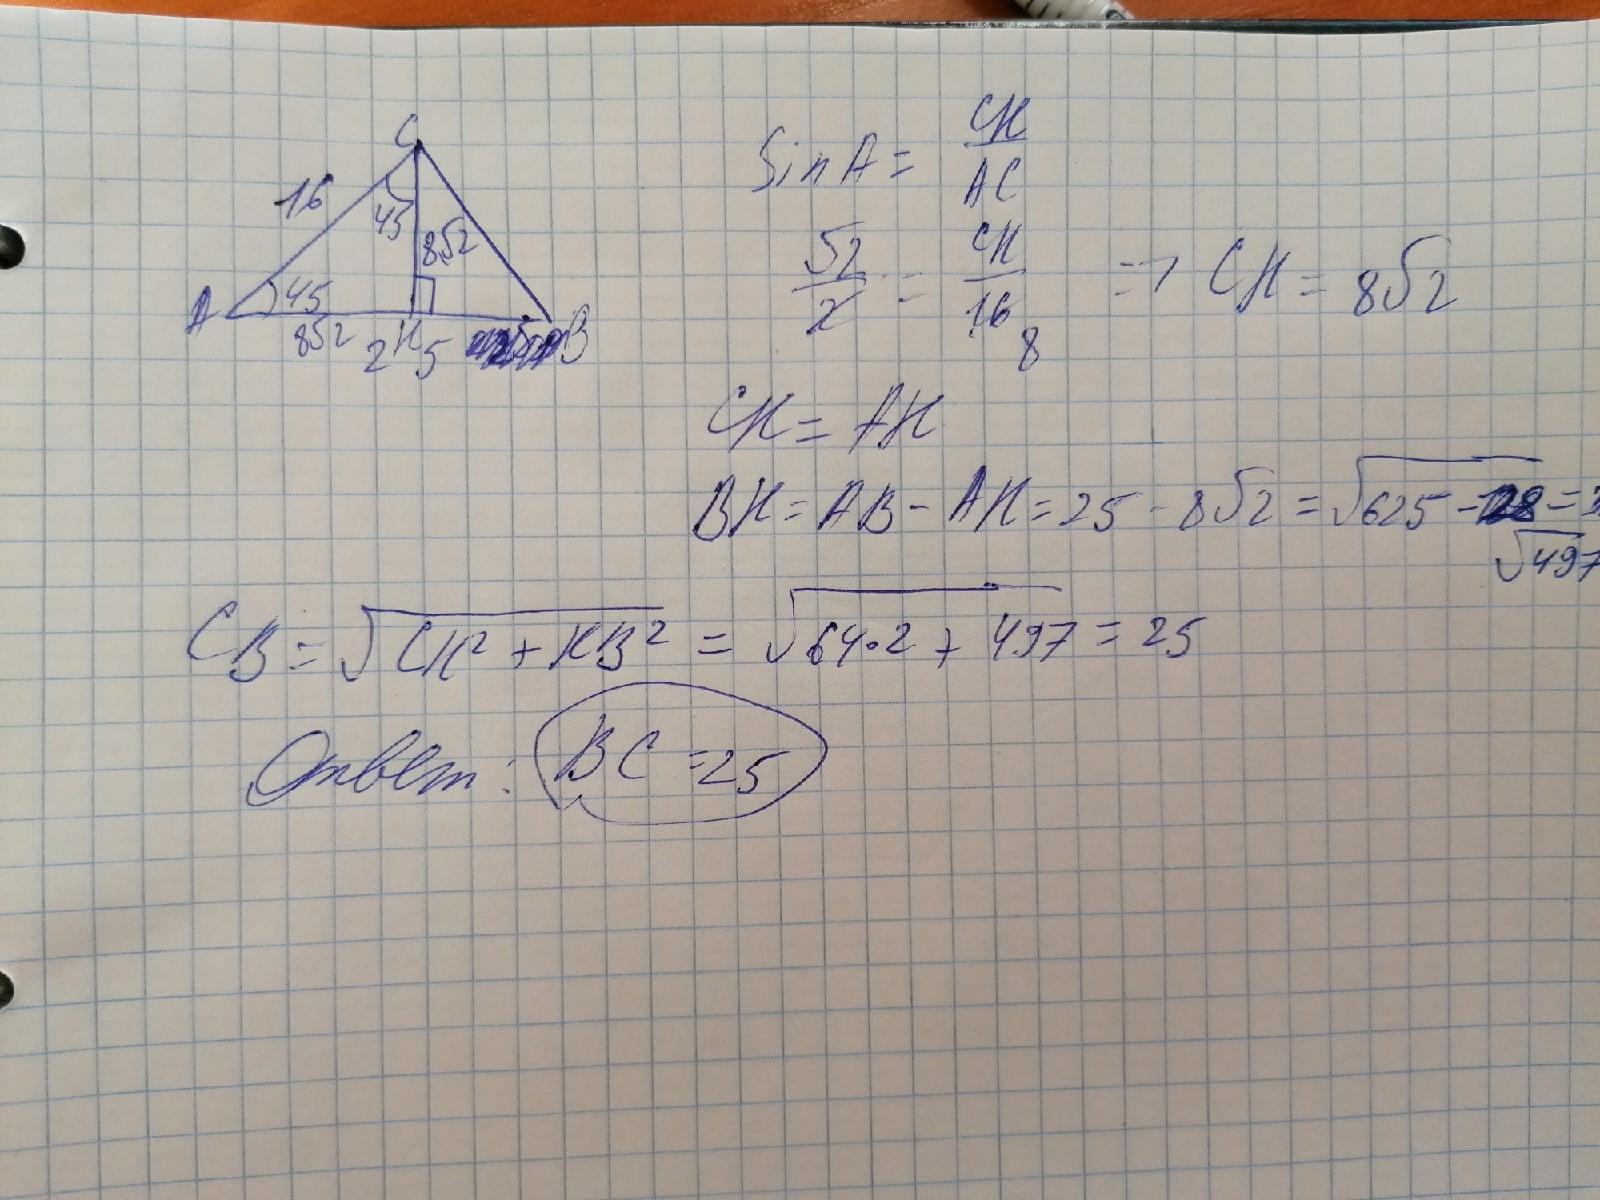 C
16
45
8√2
A
45
8√2
H
25
B
Sin A = CH/AC
√2/2 = CH/16 => CH = 8√2
8
CH = AH
BH = AB - AH = 25 - 8√2 = √625 - 128 =
√497
CB = √CH² + HB² = √64·2 + 497 = 25
Ответ: BC = 25